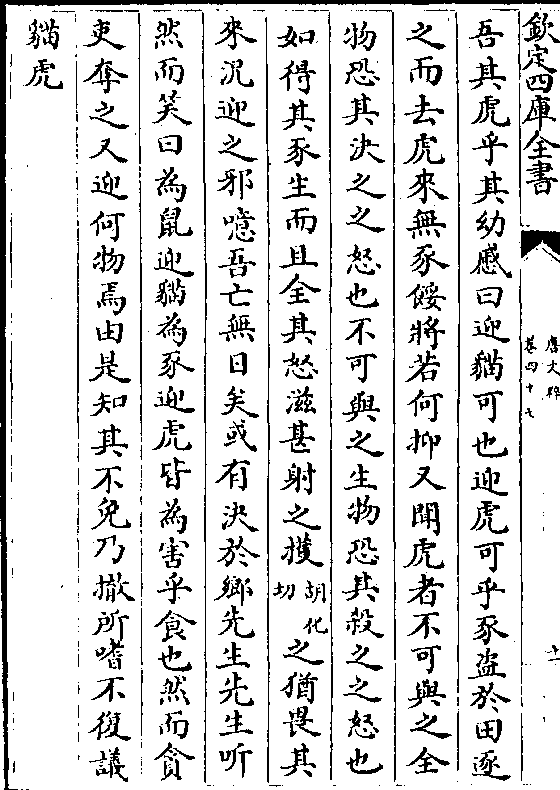 欽定四庫全書
唐文粹
卷四十七
吾其虎乎其幼慼曰迎貓可也迎虎可乎豕盗於田逐
之而去虎來無豕餒將若何抑又聞虎者不可與之全
物恐其決之之怒也不可與之生物恐其殺之之怒也
如得其豕生而且全其怒滋甚射之擭胡化切之猶畏其
來況迎之邪噫吾亡無日矣或有決於鄉先生先生听
然而笑曰為鼠迎貓為豕迎虎皆為害乎食也然而貪
吏奪之又迎何物焉由是知其不免乃撤所嗜不復議
貓虎